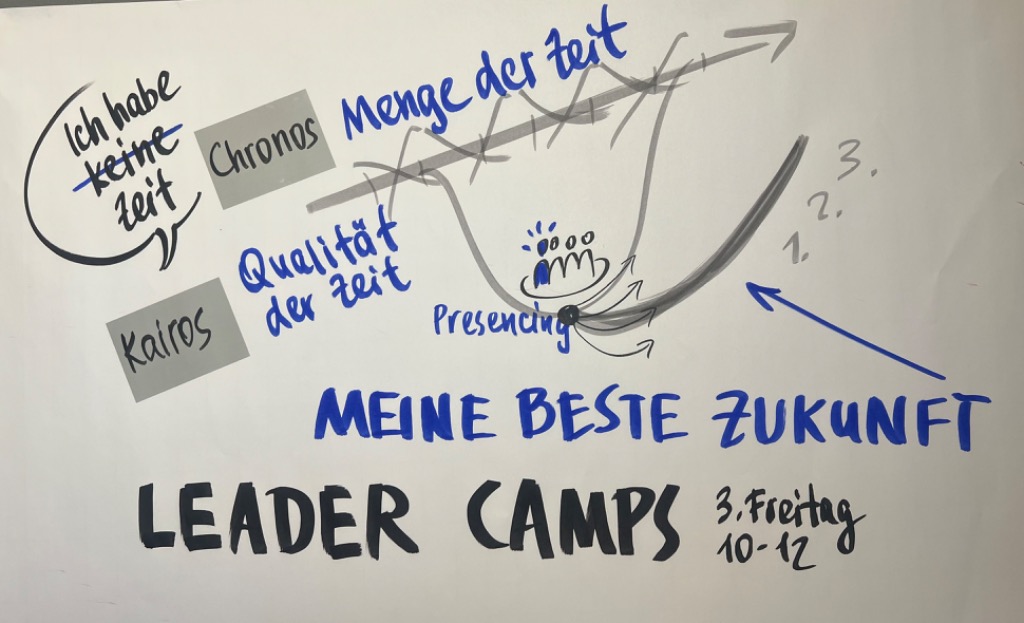 Ich habe
keine
Zeit
Chronos
Menge der Zeit
Kairos
Qualität
der Zeit
Presencing
1.
2.
3.
MEINE BESTE ZUKUNFT
LEADER CAMPS
3. Freitag
10-12